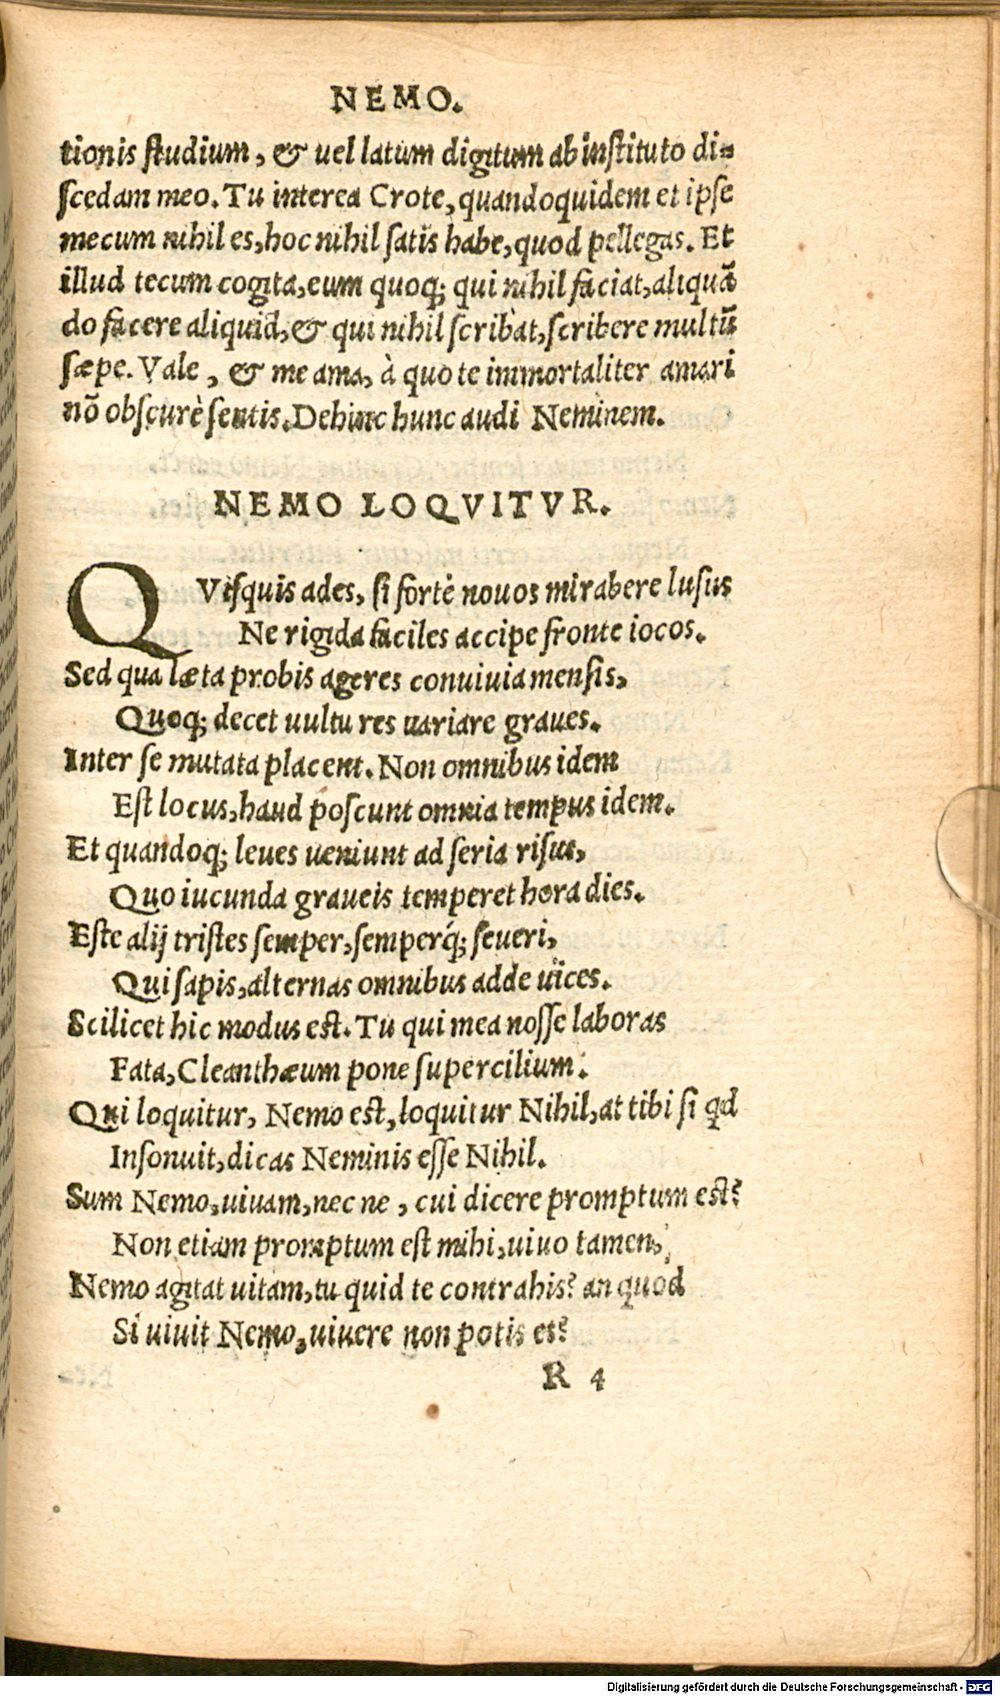 NEMO.
tionis studium, & uel latum digitum ab instituto di=
scedam meo. Tu interea Crote, quandoquidem et ipse
mecum nihil es, hoc nihil satis habe, quod pellegas. Et
illud tecum cogita, eum quoq; qui nihil faciat, aliquã
do facere aliquid, & qui nihil scribat, scribere multũ
sæpe. Vale, & me ama, à quo te immortaliter amari
nõ obscurè sentis. Dehinc hunc audi Neminem.
NEMO LOQVITVR.
QVisquis ades, si fortè nouos mirabere lusus
Ne rigida faciles accipe fronte iocos.
Sed qua læta probis ageres conuiuia mensis,
Quoq; decet uultu res uariare graues.
Inter se mutata placent. Non omnibus idem
Est locus, haud poscunt omnia tempus idem.
Et quandoq; leues ueniunt ad seria risus,
Quo iucunda graueis temperet hora dies.
Este alij tristes semper, semperq́; seueri,
Qui sapis, alternas omnibus adde uices.
Scilicet hic modus est. Tu qui mea nosse laboras
Fata, Cleanthæum pone supercilium.
Qui loquitur, Nemo est, loquitur Nihil, at tibi si qd
Insonuit, dicas Neminis esse Nihil.
Sum Nemo, uiuam, nec ne, cui dicere promptum est?
Non etiam promptum est mihi, uiuo tamen,
Nemo agitat uitam, tu quid te contrahis? an quod
Si uiuit Nemo, uiuere non potis es?
R 4
Digitalisierung gefördert durch die Deutsche Forschungsgemeinschaft - DFG